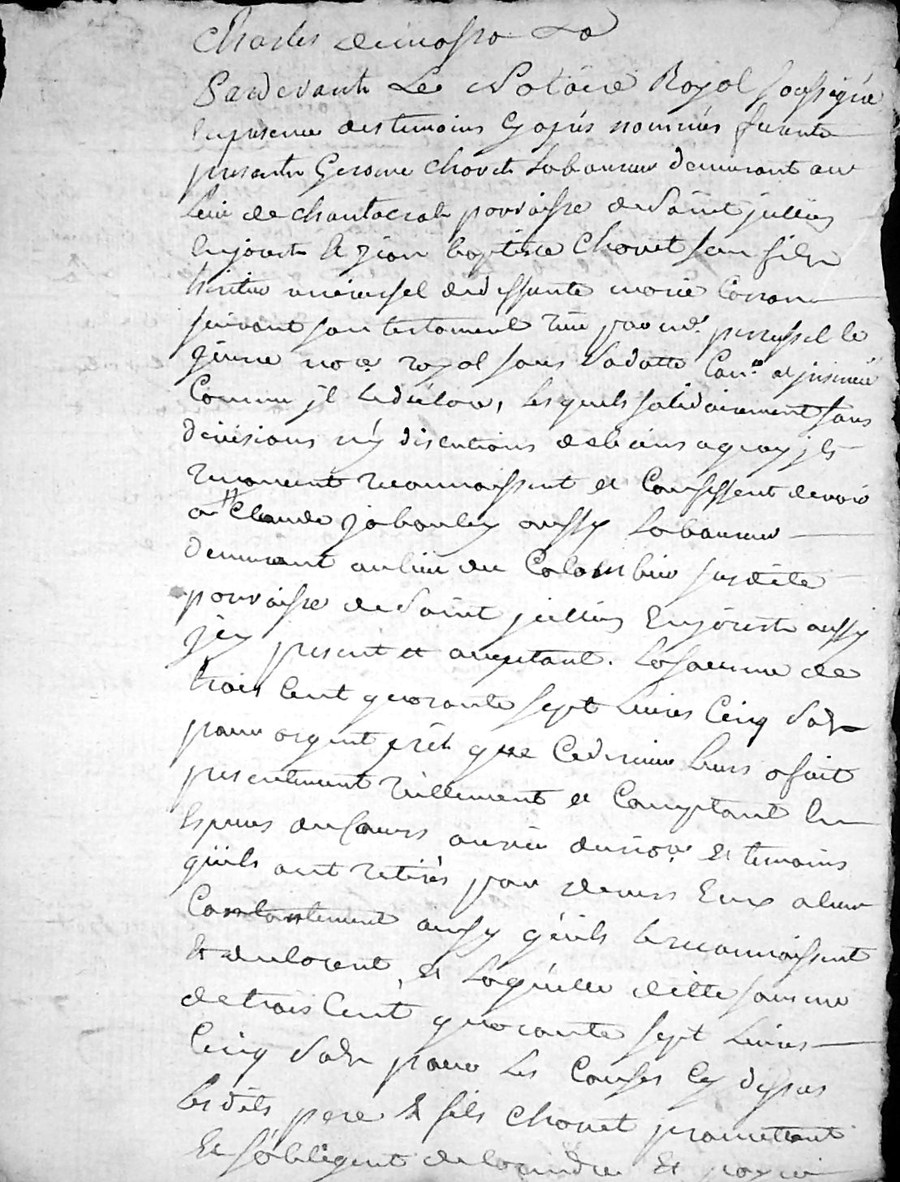 Charles
Pardevant Le Notaire Royal soussigné
En presence des temoins Cy aprés nommés furent
presents Gerome Chovet Laboureur demeurant au
Lieu de Chantacrah parroisse de Saint jullien
En jovest & Jean baptiste Chovet son fils
heritier universel de deffunte marie
suivant son testament reçu par me. perussel le
jeune nore. royal sous sa datte Conle. et jnsinué
Comme jl Le déclare, Lesquels solidairement sans
division ny discutions de biens a quoy jls
renoncent reconnoissent et Confessent devoir
a Sr Claude jabouley aussy Laboureur
demeurant au lieu du Colombier susdite
parroisse de Saint jullien En jovest aussy
jcy present et aceptant. La somme de
trois Cent quarante sept Livres Cinq sols
pour argent prêt que Ce dernier Leurs a fait
presentement réellement et Comptant En
Espéces du Cours au vû du nore. Et temoins
qu'ils ont retirés par devers Eux a leur
Contentement ainsy qu'ils Le reconnoissent
Et declarent, Et Laquelle ditte somme
de trois Cent quarante sept Livres
Cinq sols pour Les Causes Cy dessus
Lesdits pere & fils Chovet promettent
Et s'obligent de Et payer